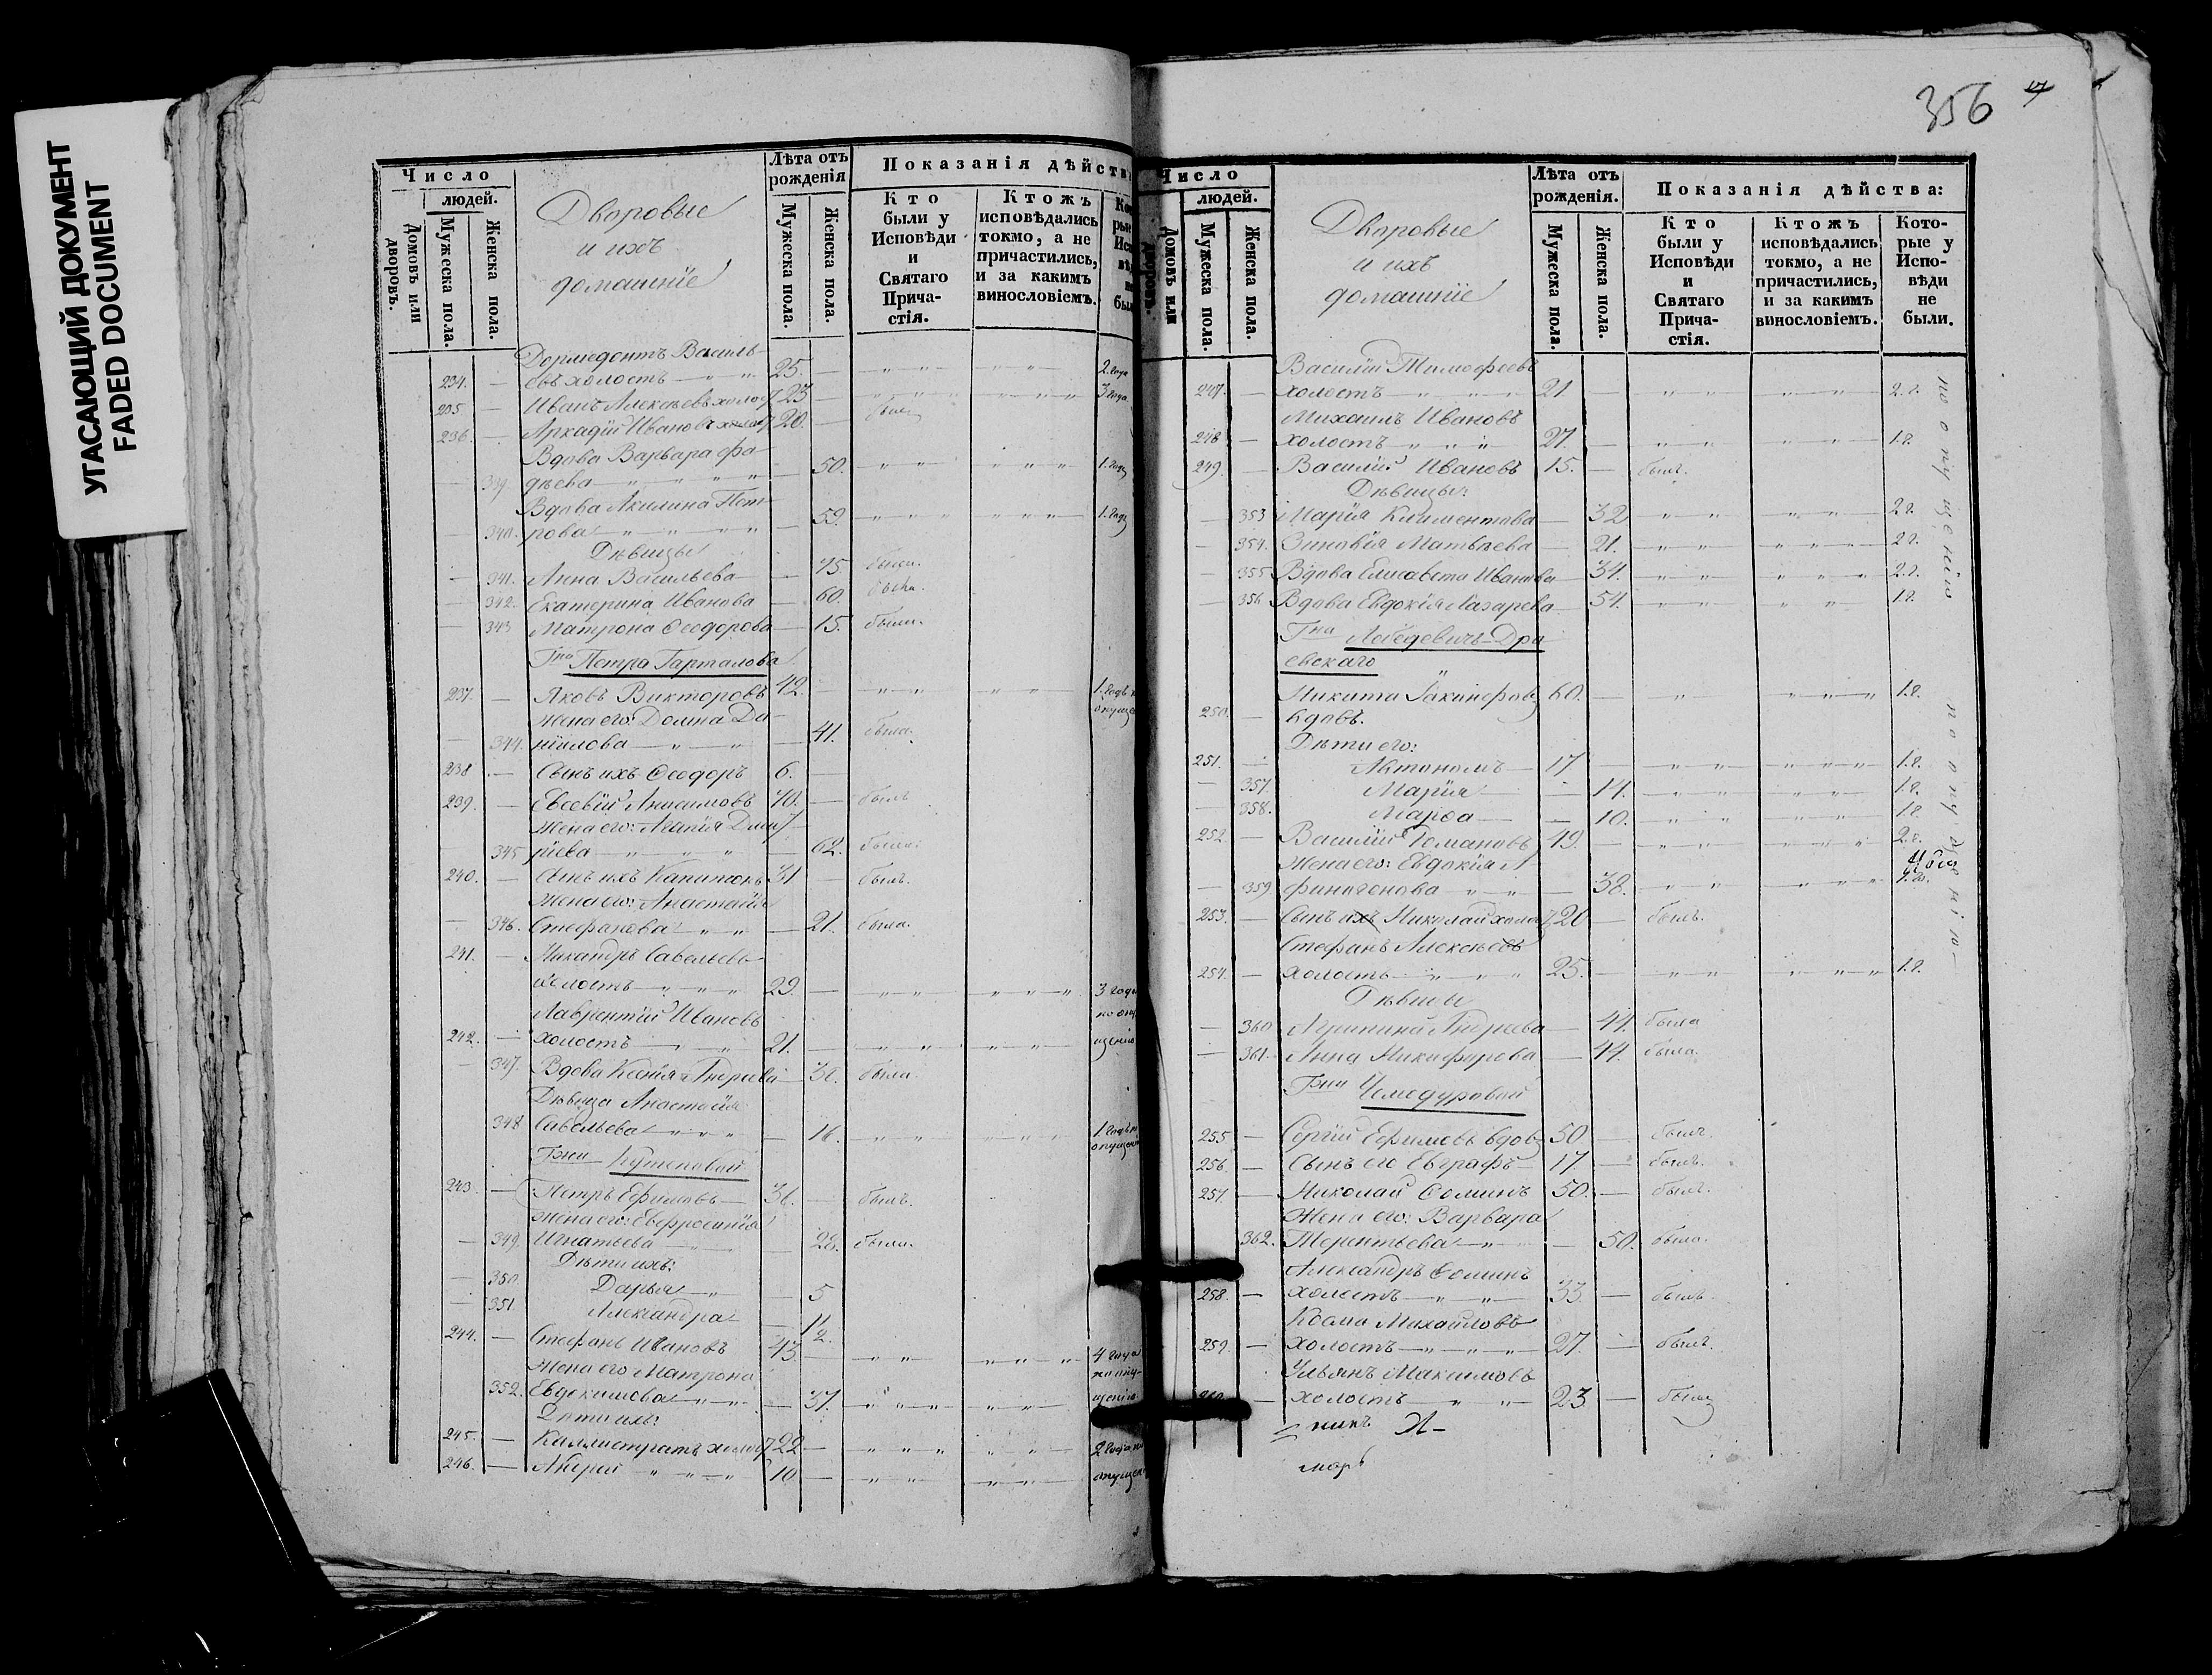 УГАСАЮЩИЙ ДОКУМЕНТ
FADED DOCUMENT
Число
людей.
Домовъ или дворовъ.
Мужеска пола.
Женска пола.
Дворовые
и ихъ
домашніе
Лѣта отъ рожденія
Мужеска пола.
Женска пола.
Показанія дѣйства
Кто были у Исповѣди и Святаго Прича-стія.
Ктожъ исповѣдались токмо, а не причастились, и за какимъ винословіемъ.
Дормедонтъ Василь-
234. — евъ холостъ — " " 25. — " " " " 2. года
235 — Иванъ Алексѣевъ холост 23 — " " " " " 3 года
236. — Аркадій Ивановъ холост 20. — былъ
Вдова Варвара Фа-
339 дѣева — " " " " — 50. " " " " " 1. годъ
Вдова Акилина Пет-
— 340. рова — " " " " — 59. " " " " " 1. годъ
Дѣвицы
— 341. Анна Васильева — 75 была.
— 342. Екатерина Иванова — 60. была.
— 343 Матрона Ѳеодорова — 15. была.
Гна Петра Гарталова
237. — Яковъ Викторовъ 42. — " " " " 1. годъ
Жена его: Домна Да-
— 344. ніилова — " — " — 41. была.
238 — Сынъ ихъ Ѳеодоръ 6. —
239. — Евсевій Анисимовъ 70. — былъ
Жена его: Агапія Дмит-
345 ріева — " " " — 62. была.
240. — Сынъ ихъ Капитонъ 31 — былъ.
Жена его: Анастасія
— 346. Стефанова — " " — 21. была.
241. — Никандръ Савельевъ
холостъ — " " " 29. — " " " " " 3 года
Лаврентій Ивановъ по опу
242. — холостъ — " " 21. — " " " " " щенію
— 347. Вдова Ксенія Андреева — 36. была.
Дѣвица Анастасія
348 Савельева — " " " — 16. " " " " " 1. годъ по
опущен
Гжи Кутеповой
243. — Петръ Ефимовъ — 36. — былъ.
Жена его: Евфросинія
— 349. Игнатьева — 28. была.
Дѣти ихъ:
— 350 Дарья — " — 5
— 351. Александра — 1/2.
244. — Стефанъ Ивановъ 43. — " " " " " 4 года
Жена его Матрона по опу-
352. Евдокимова — " " — 37. " " " " " щенію
Дѣти ихъ:
245. — Каллистратъ холост 22 — " " " " " 2 года по
246. — Андрей " " " " 10 — " " " " " опущен
356
Число
людей.
Домовъ или дворовъ.
Мужеска пола.
Женска пола.
Дворовые
и ихъ
домашніе
Лѣта отъ рожденія.
Мужеска пола.
Женска пола.
Показанія дѣйства:
Кто были у Исповѣди и Святаго Прича-стія.
Ктожъ исповѣдались токмо, а не причастились, и за какимъ винословіемъ.
Кото-рые у Испо-вѣди не были.
Василій Тимофеевъ
247. — холостъ " " " 21 — " " " " 2. г.
Михаилъ Ивановъ
248 — холостъ " " " 27. — " " " " 1. г.
249. — Василій Ивановъ 15. — былъ.
Дѣвицы:
— 353 Марія Климентова — 32 " " " " 2 г.
— 354. Зиновія Матвѣева — 21. " " " " 2 г.
— 355 Вдова Елисавета Иванова — 34. " " " " " 2. г.
— 356 Вдова Евдокія Лазарева — 54. " " " " 1. г.
по опущенію
Гна Лебедевичъ-Дра
евскаго
Никита Іакинфовъ 60. — " " " " 1. г.
250. — вдовъ.
Дѣти его:
251. — Автономъ — 17 — " " " " " 1. г.
— 357. Марія — 14. " " " " 1. г.
— 358. Марѳа — 10. " " " " 1. г.
252 — Василій Романовъ 49. — " " " " " 2. г.
Жена его: Евдокія А
— 359. финогенова " " — 38. " " " " "
253. — Сынъ ихъ Николай холост 20 — былъ.
Стефанъ Алексѣевъ
254. — холостъ " " " 25. — " " " " " 1. г.
по опущенію
Дѣвицы
— 360 Агрипина Андреева — 44. была
— 361. Анна Никифорова — 44. была.
Гжи Чемодуровой
255 — Сергій Ефимовъ вдов 50 — былъ.
256. — Сынъ его Евграфъ — 17. — былъ.
257. — Николай Ѳоминъ 50. — былъ.
Жена его: Варвара
362. Терентьева — " — 50. была.
Александръ Ѳоминъ
258. — холостъ — " " 33. — былъ.
Косма Михайловъ
259. — холостъ — " " " 27. — былъ.
Ульянъ Максимовъ
260. — холостъ " " 23 — былъ
никъ А-